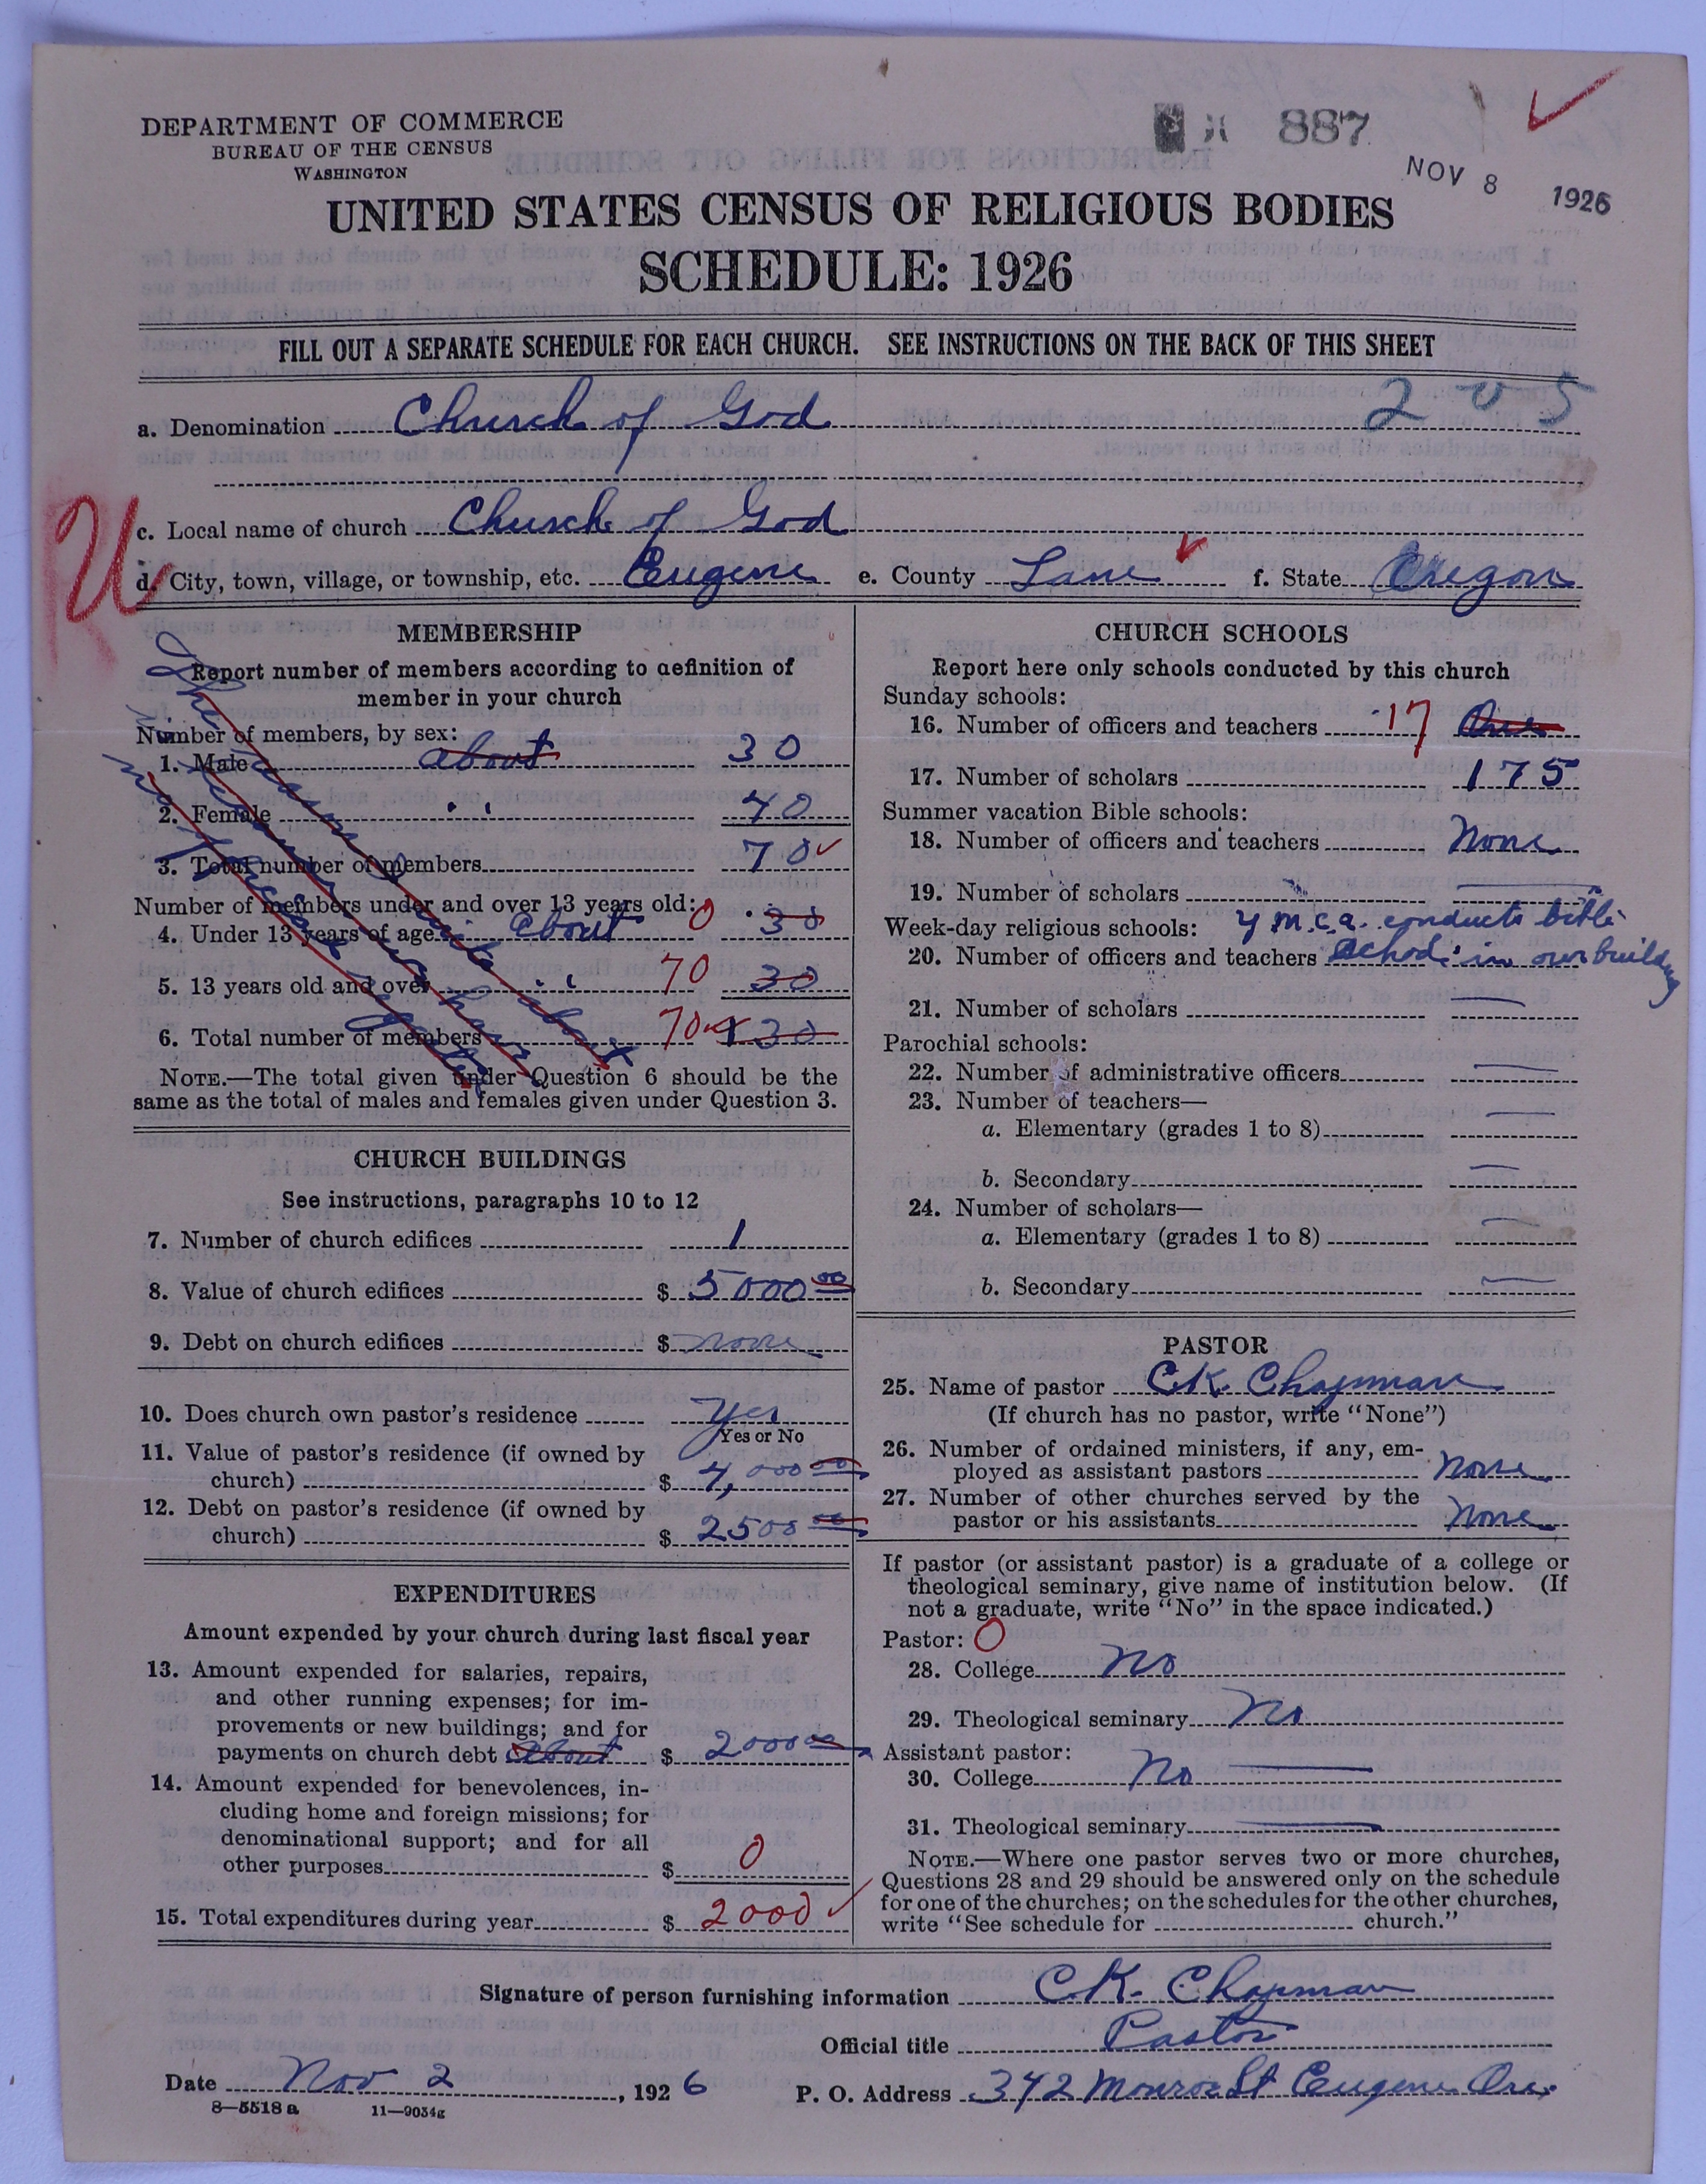 DEPARTMENT OF COMMERCE
BUREAU OF THE CENSUS
WASHINGTON
887
NOV 8 1926
UNITED STATES CENSUS OF RELIGIOUS BODIES
SCHEDULE: 1926
FILL OUT A SEPARATE SCHEDULE FOR EACH CHURCH. SEE INSTRUCTIONS ON THE BACK OF THIS SHEET
205
a. Denomination Church of God
c. Local name of church Church of God
U
d. City, town, village, or township, etc. Eugene e. County Lane f. State Oregon
MEMBERSHIP
Report number of members according to definition of
member in your church
Number of members, by sex:
1. Male about 30
2. Female " 40
3. Total number of members 70
Number of members under and over 13 years old:
4. Under 13 years of age about 0 30
5. 13 years old and over " 70 30
6. Total number of members 70 30
NOTE.—The total given under Question 6 should be the
same as the total of males and females given under Question 3.
CHURCH BUILDINGS
See instructions, paragraphs 10 to 12
7. Number of church edifices 1
8. Value of church edifices $ 5000 00
9. Debt on church edifices $ none
10. Does church own pastor's residence yes
Yes or No
11. Value of pastor's residence (if owned by
church) $ 4,000 00
12. Debt on pastor's residence (if owned by
church) $ 2500 00
EXPENDITURES
Amount expended by your church during last fiscal year
13. Amount expended for salaries, repairs,
and other running expenses; for im-
provements or new buildings; and for
payments on church debt about $ 2000 00
14. Amount expended for benevolences, in-
cluding home and foreign missions; for
denominational support; and for all
other purposes $ 0
15. Total expenditures during year $ 2000
CHURCH SCHOOLS
Report here only schools conducted by this church
Sunday schools:
16. Number of officers and teachers 17 One
17. Number of scholars 175
Summer vacation Bible schools:
18. Number of officers and teachers None
19. Number of scholars
Week-day religious schools: Y.M.C.A. conducts bible
20. Number of officers and teachers school in our building
21. Number of scholars
Parochial schools:
22. Number of administrative officers
23. Number of teachers—
a. Elementary (grades 1 to 8)
b. Secondary
24. Number of scholars—
a. Elementary (grades 1 to 8)
b. Secondary
PASTOR
25. Name of pastor C.K. Chapman
(If church has no pastor, write "None")
26. Number of ordained ministers, if any, em-
ployed as assistant pastors None
27. Number of other churches served by the
pastor or his assistants None
If pastor (or assistant pastor) is a graduate of a college or
theological seminary, give name of institution below. (If
not a graduate, write "No" in the space indicated.)
Pastor: 0
28. College No
29. Theological seminary No
Assistant pastor:
30. College No
31. Theological seminary
NOTE.—Where one pastor serves two or more churches,
Questions 28 and 29 should be answered only on the schedule
for one of the churches; on the schedules for the other churches,
write "See schedule for church."
Signature of person furnishing information C.K. Chapman
Official title Pastor
Date Nov 2, 1926 P. O. Address 342 Monroe St Eugene Ore.
8—5518 a 11—9034g